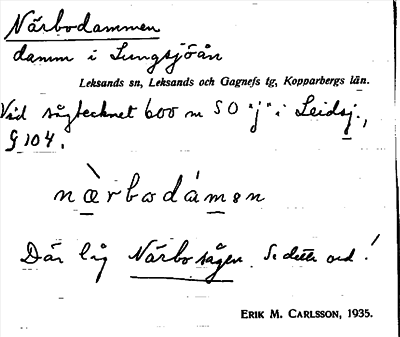 Närbodammen
damm i Lungsjöån
Leksands sn, Leksands och Gagnefs tg, Kopparbergs län.
Vid sågtecknet 600 m SO "j" i Leidsj.,
G 104.
næ̀rbodámən
Där låg Närbosågen. Se detta ord!
ERIK M. CARLSSON, 1935.